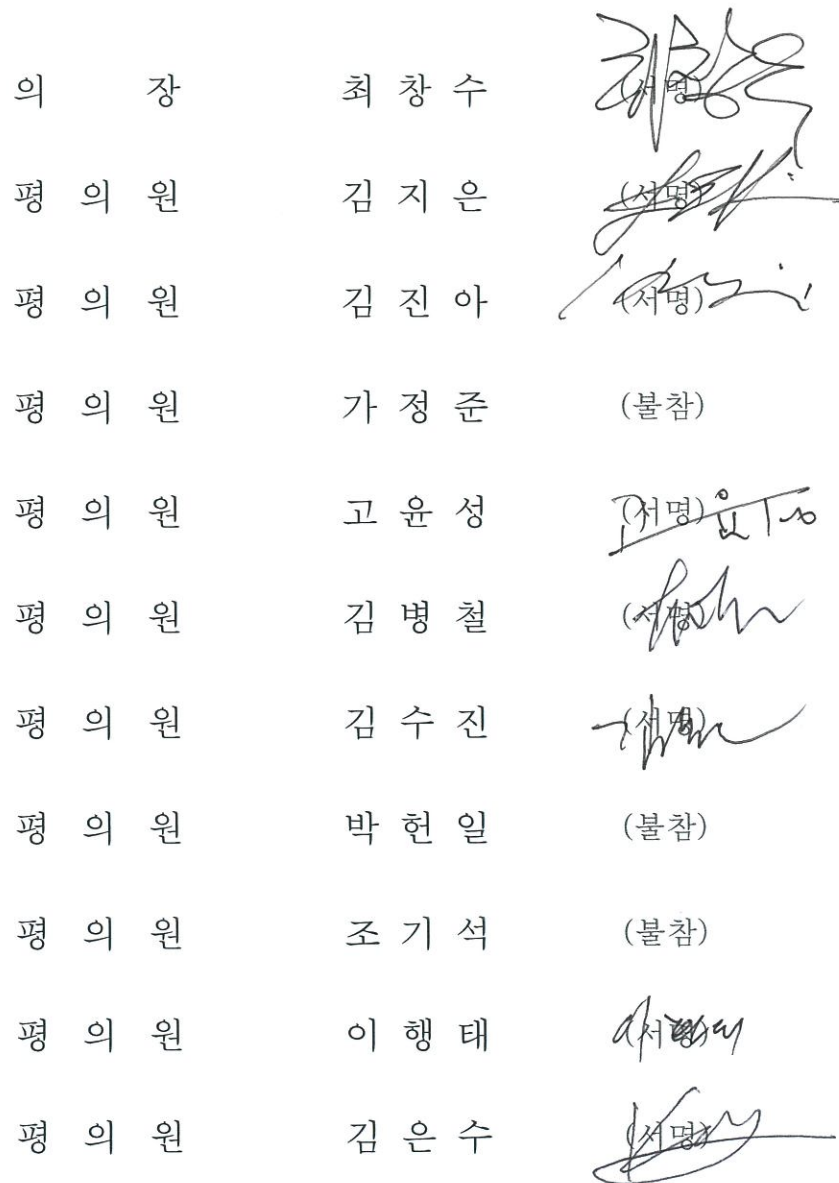 의 장 최 창 수 (서명)
평 의 원 김 지 은 (서명)
평 의 원 김 진 아 (서명)
평 의 원 가 정 준 (불참)
평 의 원 고 윤 성 (서명)
평 의 원 김 병 철 (서명)
평 의 원 김 수 진 (서명)
평 의 원 박 헌 일 (불참)
평 의 원 조 기 석 (불참)
평 의 원 이 행 태 (서명)
평 의 원 김 은 수 (서명)